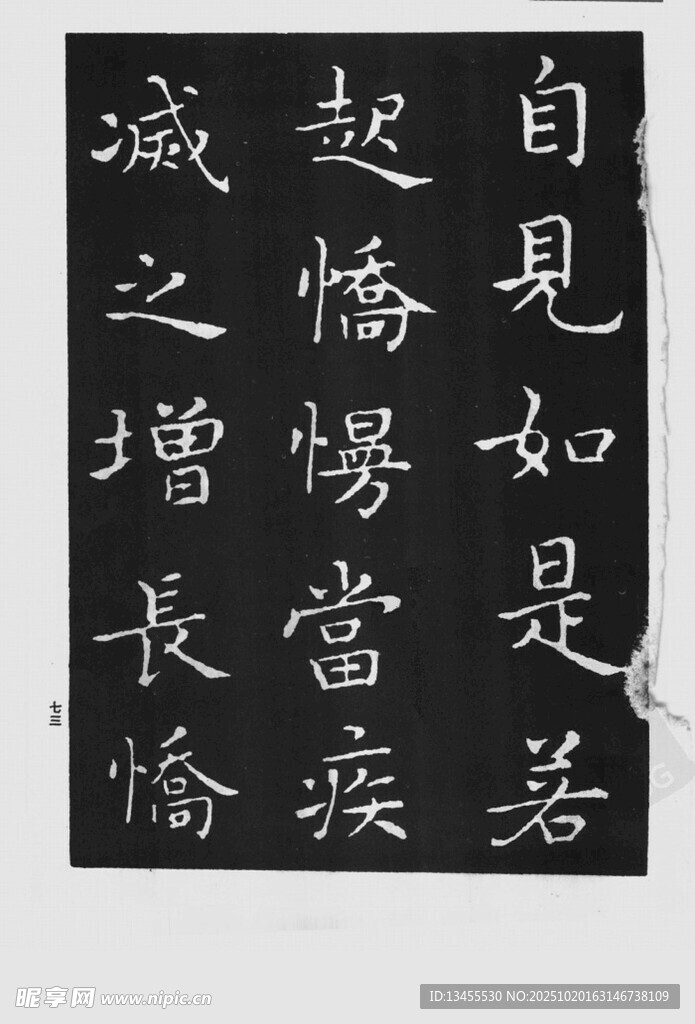 自見如是若
起憍慢當疾
滅之增長憍
七三
昵享网 www.nipic.cn
ID:13455530 NO:20251020163146738109